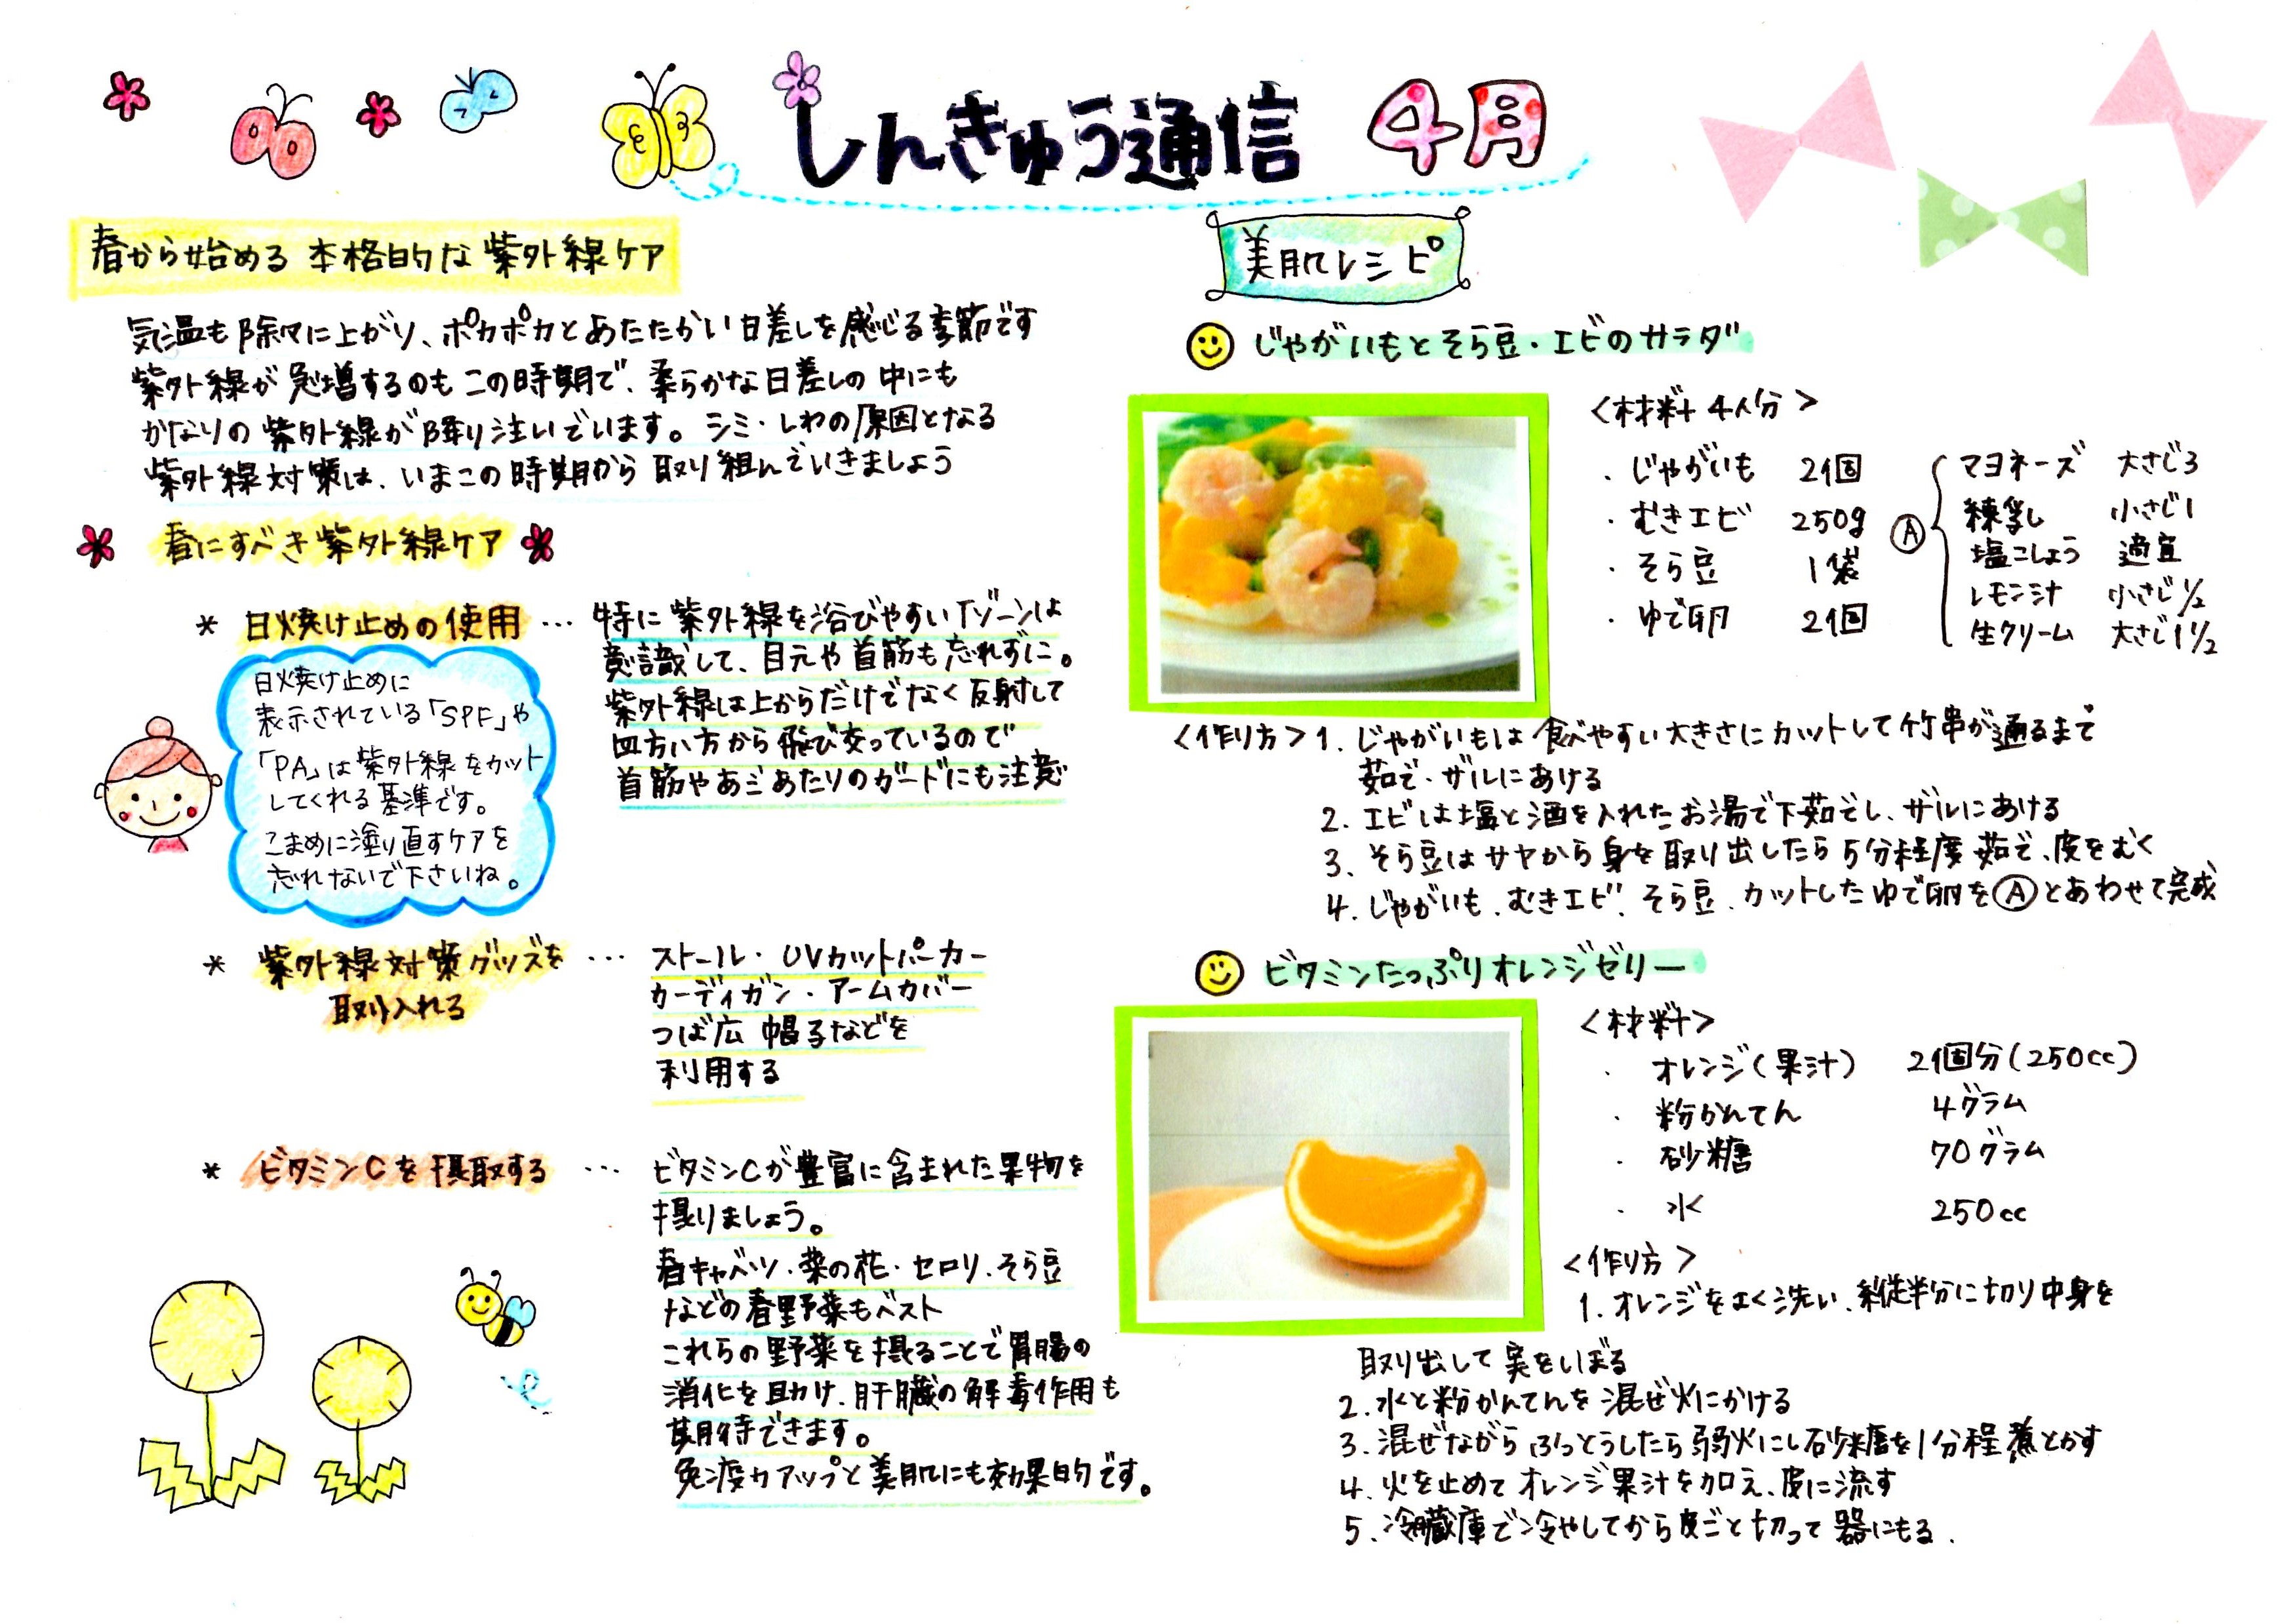 しんきゅう通信 4月
春から始める 本格的な 紫外線ケア
気温も除々に上がり、ポカポカとあたたかい日差しを感じる季節です
紫外線が急増するのもこの時期で、柔らかな日差しの中にも
かなりの紫外線が降り注いでいます。シミ・しわの原因となる
紫外線対策は、いまこの時期から取り組んでいきましょう
春にすべき紫外線ケア
* 日焼け止めの使用 … 特に紫外線を浴びやすいTゾーンは
意識して、目元や首筋も忘れずに。
紫外線は上からだけでなく反射して
四方八方から飛び交っているので
首筋やあごあたりのガードにも注意
日焼け止めに
表示されている「SPF」や
「PA」は紫外線をカット
してくれる基準です。
こまめに塗り直すケアを
忘れないで下さいね。
* 紫外線対策グッズを … ストール・UVカットパーカー
取り入れる
カーディガン・アームカバー
つば広帽子などを
利用する
* ビタミンCを摂取する … ビタミンCが豊富に含まれた果物を
摂りましょう。
春キャベツ・菜の花・セロリ・そら豆
などの春野菜もベスト
これらの野菜を摂ることで胃腸の
消化を助け、肝臓の解毒作用も
期待できます。
免疫力アップと美肌にも効果的です。
美肌レシピ
じゃがいもとそら豆・エビのサラダ
<材料 4人分>
・じゃがいも 2個
・むきエビ 250g
・そら豆 1袋
・ゆで卵 2個
Ⓐ
マヨネーズ 大さじ3
練乳 小さじ1
塩こしょう 適宜
レモン汁 小さじ1/2
生クリーム 大さじ1 1/2
<作り方> 1. じゃがいもは食べやすい大きさにカットして竹串が通るまで
茹で・ザルにあける
2. エビは塩と酒を入れたお湯で下茹でし、ザルにあける
3. そら豆はサヤから身を取り出したら5分程度茹で、皮をむく
4. じゃがいも、むきエビ、そら豆、カットしたゆで卵をⒶとあわせて完成
ビタミンたっぷりオレンジゼリー
<材料>
・オレンジ(果汁) 2個分(250cc)
・粉かんてん 4グラム
・砂糖 70グラム
・水 250cc
<作り方>
1. オレンジをよく洗い、縦半分に切り中身を
取り出して実をしぼる
2. 水と粉かんてんを混ぜ火にかける
3. 混ぜながらふっとうしたら弱火にし砂糖を1分程煮とかす
4. 火を止めてオレンジ果汁を加え、皮に流す
5. 冷蔵庫で冷やしてから皮ごと切って器にもる.